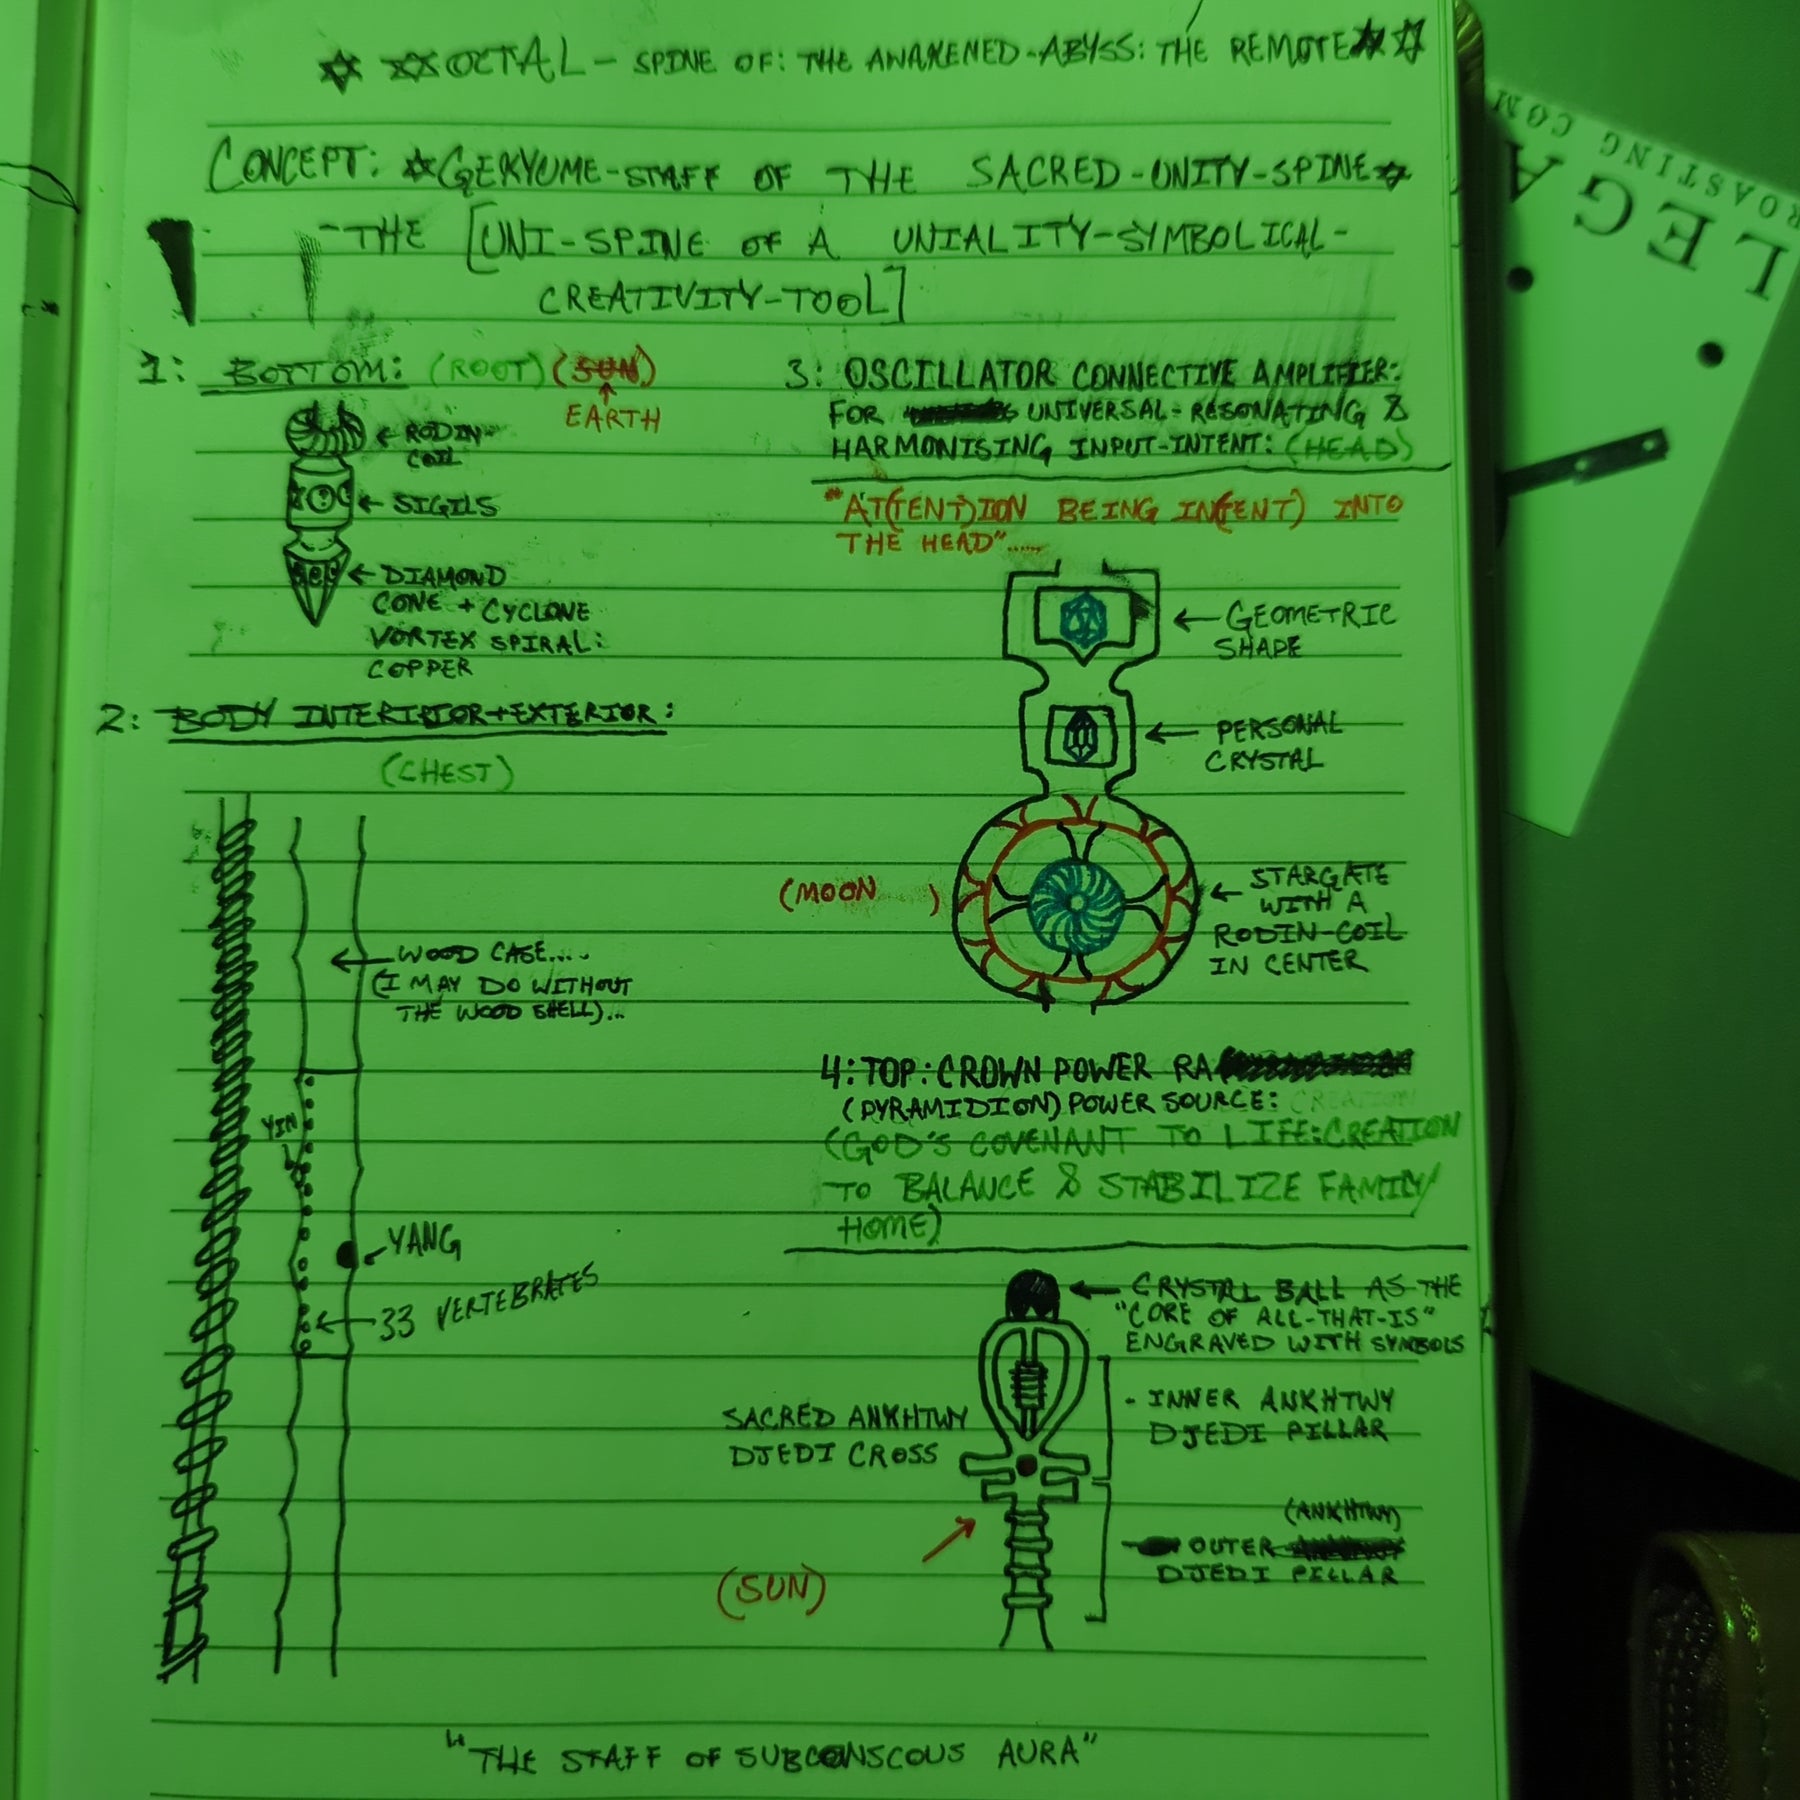 OCTAL - SPINE OF: THE AWAKENED-ABYSS: THE REMOTE
CONCEPT: GEKYUME-STAFF OF THE SACRED-UNITY-SPINE
-THE [UNI-SPINE OF A UNIALITY-SYMBOLICAL-
CREATIVITY-TOOL]
1: BOTTOM: (ROOT) (SUN)
EARTH
RODIN
COIL
SIGILS
DIAMOND
CONE + CYCLONE
VORTEX SPIRAL:
COPPER
2: BODY INTERIRIOR+EXTERIOR:
(CHEST)
WOOD CASE....
(I MAY DO WITHOUT
THE WOOD SHELL)...
YIN
YANG
33 VERTEBRATES
3: OSCILLATOR CONNECTIVE AMPLIFIER:
FOR UNIVERSAL-RESONATING &
HARMONISING INPUT-INTENT: (HEAD)
"AT(TENT)ION BEING IN(TENT) INTO
THE HEAD"......
GEOMETRIC
SHAPE
PERSONAL
CRYSTAL
(MOON )
STARGATE
WITH A
RODIN-COIL
IN CENTER
4: TOP: CROWN POWER RA
(PYRAMIDION) POWER SOURCE: CREATION
(GOD'S COVENANT TO LIFE:CREATION
TO BALANCE & STABILIZE FAMILY/
HOME)
CRYSTAL BALL AS THE
"CORE OF ALL-THAT-IS"
ENGRAVED WITH SYMBOLS
SACRED ANKHTWY
DJEDI CROSS
- INNER ANKHTWY
DJEDI PILLAR
(ANKHTWY)
OUTER
DJEDI PILLAR
(SUN)
"THE STAFF OF SUBCONSCOUS AURA"
LEGA
ROASTING COM